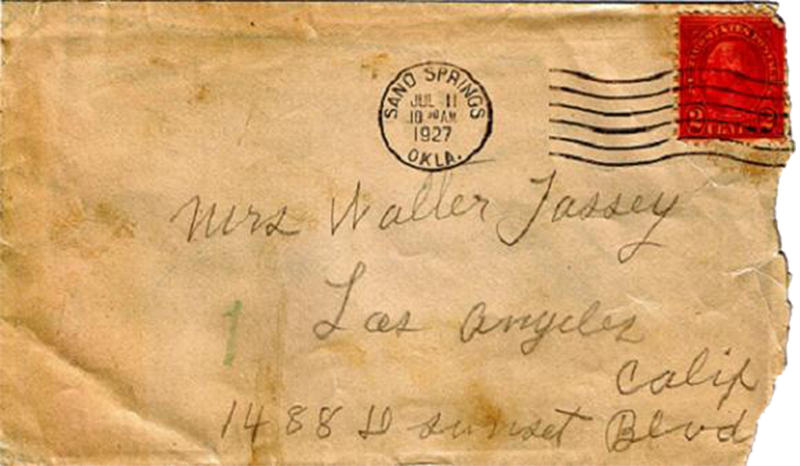 SAND SPRINGS
JUL 11
10 30 AM
1927
OKLA.
2 CENTS 2
Mrs Walter Tassey
Los Angeles
Calif
1488 W sunset Blvd
1